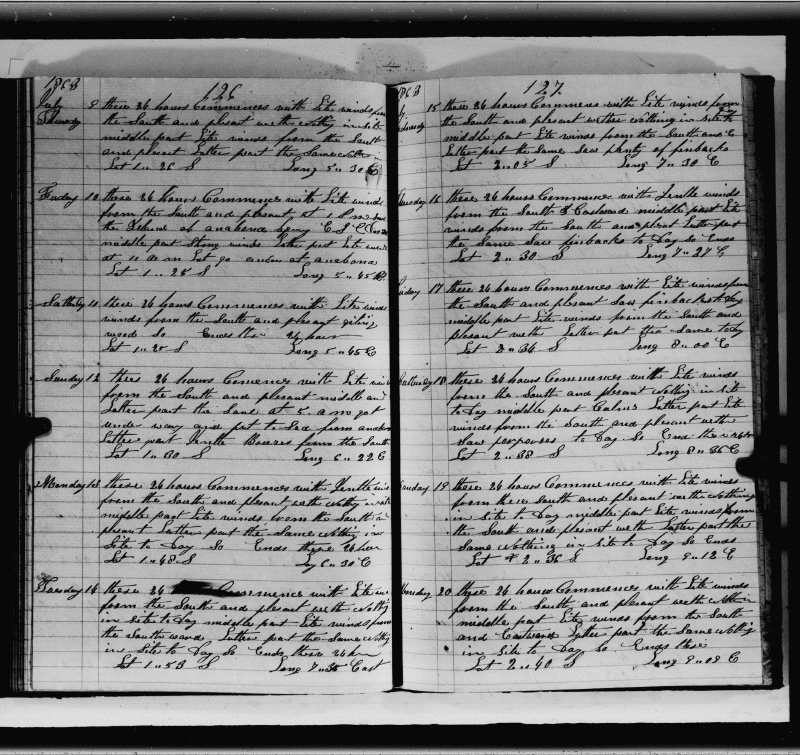 1863
126
July 9 these 24 hours Commences with Lite winds from
Thursday the South and plesent weth nothing in site
middle part Lite winds from the South
and plesent Latter part the Same
Lat 1 .. 26 S Long 5 .. 30 E
Friday 10 these 24 hours Commences with Lite winds
from the South and plesent at 1 P m
the Island of anabona E S E
middle part Strong winds Latter part Lite winds
at 10 a m Let go at anabona
Lat 1 .. 25 S Long 5 .. 45 E
Satterday 11 these 24 hours Commences with Lite winds
winds from the South and plesent giting
wood So Ends the 24 hours
Lat 1 .. 25 S Long 5 .. 45 E
Sunday 12 thees 24 hours Comences with Lite
from the South and plesent middle and
Latter part the Same at 5 a m got
under way and put to Sea from
Latter part Gentle Breezes from the South
Lat 1 .. 30 S Long 6 .. 22 E
Monday 13 these 24 hours Commences with Gentle winds
from the South and plesent weth nothing in site
middle part Lite winds from the South
plesent Latter part the Same nothing in
Site to Day So Ends these 24 hour
Lat 1 .. 48 S Long 6 .. 30 E
Tuesday 14 these 24 Commences with Lite
from the South and plesent weth nothing
in Site to Day middle part Lite winds from
the Southward Latter part the Same nothing
in Site to Day So Ends these 24 hour
Lat 1 .. 53 S Long 7 .. 35 East
1863
127
15 these 24 hours Commences with Lite winds from
the South and plesent wether nothing in site
middle part Lite winds from the South and
Latter part the Same Saw plenty of finbacks
Lat 2 .. 05 S Long 7 .. 30 E
16 these 24 hours Commences with Gentle winds
from the South & Eastward middle part Lite
winds from the South and plesent Latter part
the Same Saw finbacks to Day So Ends
Lat 2 .. 30 S Long 7 .. 27 E
17 these 24 hours Commences with Lite winds from
the South and plesent Saw finbacks to Day
middle part Lite winds from the South and
plesent weth Latter part the Same to Day
Lat 2 .. 34 S Long 8 .. 00 E
Satturday 18 these 24 hours Commences with Lite winds
from the South and plesent nothing in Site
to Day middle part Calms Latter part Lite
winds from the South and plesent with
Saw porpouses to Day So End the 24
Lat 2 .. 38 S Long 8 .. 36 E
Sunday 19 these 24 hours Commences with Lite winds
from the South and plesent weth nothing
in Site to Day middle part Lite winds from
the South and plesent weth Latter part the
Same nothing in Site to Day So Ends
Lat 2 .. 36 S Long 9 .. 12 E
Monday 20 these 24 hours Commences with Lite winds
from the South and plesent weth nothing
middle part Lite winds from the South
and Eastward Latter part the Same nothing
in Site to Day So Ends these
Lat 2 .. 40 S Long 9 .. 09 E